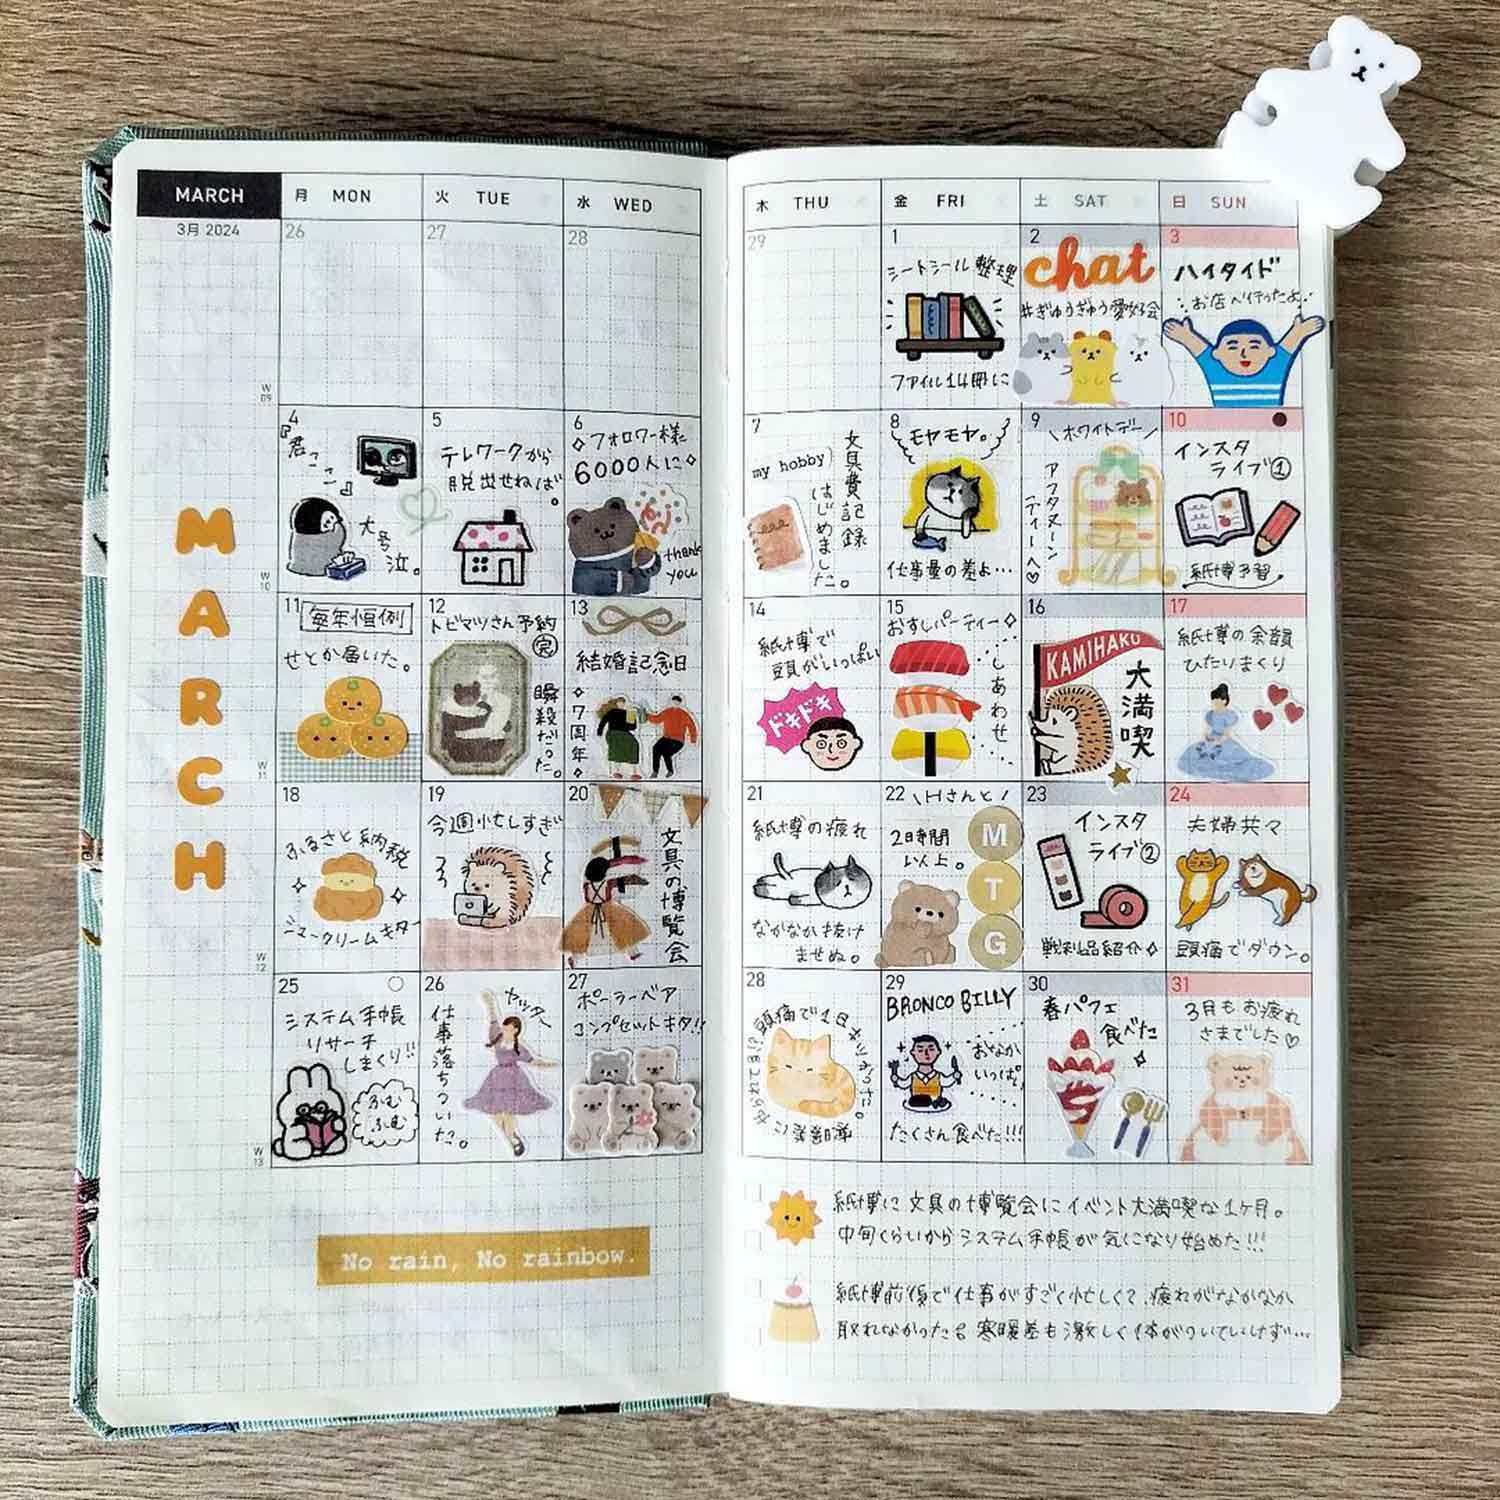 MARCH
月 MON
火 TUE
水 WED
木 THU
金 FRI
土 SAT
日 SUN
3月 2024
26
27
28
29
1
シートシール整理
ファイル14冊に
2
chat
#ぎゅうぎゅう愛好会
3
ハイタイド
お店へ行ったよ
W
09
MARCH
4
『君
大号
泣。
5
テレワークから
脱出せねば。
6
フォロワー様に
6000人に
thank
you
7
my hobby)
文具費記録
はじめました。
8
モヤモヤ。
仕事量の差よ…
9
\ホワイトデー/
アフタヌーン
ティーへ♡
10
インスタ
ライブ①
紙博予習
W
10
11
毎年恒例
せとか届いた。
12
トビマツさん予約
完
瞬殺だった。
13
結婚記念日
7周年
14
紙博で
頭がいっぱい
ドキドキ
15
おすしパーティー
しあわせ…
16
KAMIHAKU
大満喫
17
紙博の余韻
ひたりまくり
W
11
18
ふるさと納税
シュークリームキター
19
今週忙しすぎ
20
文具の博覧会
21
紙博の疲れ
なかなか抜け
ませぬ。
22
\Hさんと/
2時間
以上。
MTG
23
インスタ
ライブ②
戦利品紹介
24
夫婦共々
頭痛でダウン。
W
12
25
システム手帳
リサーチ
しまくり!!
ふむ
ふむ
26
仕事落ちついた。
ヤッター
27
ポーラーベア
コンプセットキタ!!
28
頭痛で1日
29
BRONCO BILLY
おなか
いっぱい
たくさん食べた!!!
30
春パフェ
食べた
31
3月もお疲れ
さまでした♡
W
13
No rain, No rainbow.
紙博に文具の博覧会にイベント大満喫な1ヶ月。
中旬くらいからシステム手帳が気になり始めた!!!
紙博前後で仕事がすごく忙しくて、疲れがなかなか
取れなかった。寒暖差も激しく体がついていけず…